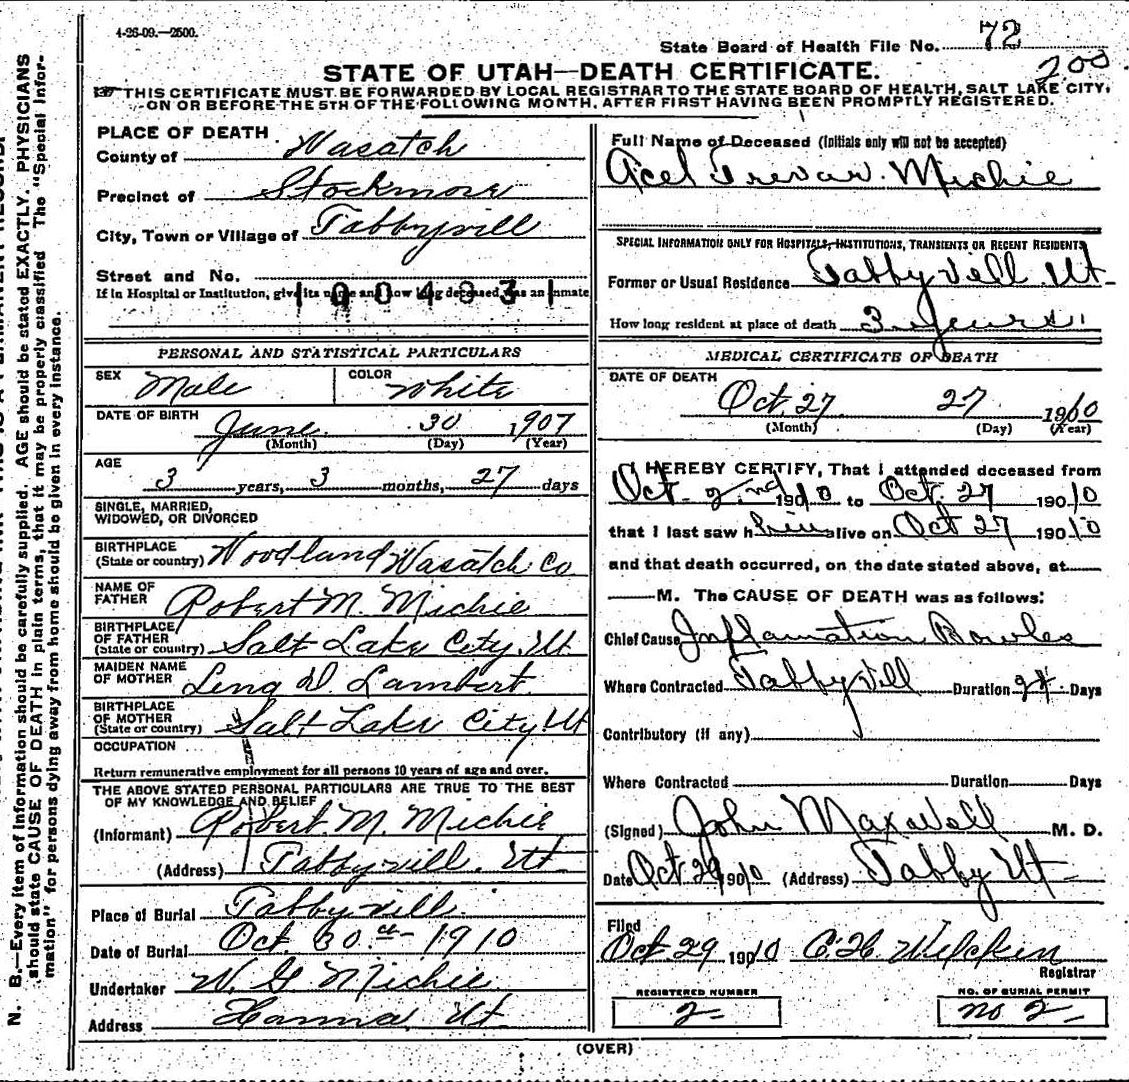 4-26-09.—2500.
State Board of Health File No. 72
200
STATE OF UTAH—DEATH CERTIFICATE.
THIS CERTIFICATE MUST BE FORWARDED BY LOCAL REGISTRAR TO THE STATE BOARD OF HEALTH, SALT LAKE CITY,
ON OR BEFORE THE 5TH OF THE FOLLOWING MONTH, AFTER FIRST HAVING BEEN PROMPTLY REGISTERED.
PLACE OF DEATH
County of Wasatch
Precinct of Stockmore
City, Town or Village of Tabbyvill
Street and No.
If in Hospital or Institution, give its name and how long deceased was an inmate
1004831
PERSONAL AND STATISTICAL PARTICULARS
SEX Male COLOR White
DATE OF BIRTH June 30 1907
(Month) (Day) (Year)
AGE 3 years, 3 months, 27 days
SINGLE, MARRIED,
WIDOWED, OR DIVORCED
BIRTHPLACE
(State or country) Woodland Wasatch Co
NAME OF
FATHER Robert M. Michie
BIRTHPLACE
OF FATHER
(State or country) Salt Lake City Ut
MAIDEN NAME
OF MOTHER Lena D. Lambert
BIRTHPLACE
OF MOTHER
(State or country) Salt Lake City Ut
OCCUPATION
Return remunerative employment for all persons 10 years of age and over.
THE ABOVE STATED PERSONAL PARTICULARS ARE TRUE TO THE BEST
OF MY KNOWLEDGE AND BELIEF
(Informant) Robert M. Michie
(Address) Tabbyvill. Ut
Place of Burial Tabbyvill.
Date of Burial Oct 30 1910
Undertaker W. G Michie
Address Hanna Ut
Full Name of Deceased (Initials only will not be accepted)
Acel Trevar Michie
SPECIAL INFORMATION ONLY FOR HOSPITALS, INSTITUTIONS, TRANSIENTS OR RECENT RESIDENTS
Former or Usual Residence Tabbyvill Ut
How long resident at place of death 3 Years
MEDICAL CERTIFICATE OF DEATH
DATE OF DEATH
Oct. 27 27 1910
(Month) (Day) (Year)
I HEREBY CERTIFY, That I attended deceased from
Oct. 2nd 190 10 to Oct. 27 190 10
that I last saw him alive on Oct 27 190 10
and that death occurred, on the date stated above, at
M. The CAUSE OF DEATH was as follows:
Chief Cause Inflamation Bowles
Where Contracted Tabbyvill Duration Days
Contributory (if any)
Where Contracted Duration Days
(Signed) John Maxwell M. D.
Date Oct 1910 (Address) Tabby Ut
Filed
Oct 29 1910 C. H Wilcken
Registrar
REGISTERED NUMBER
2
NO. OF BURIAL PERMIT
no 2
(OVER)
N. B.—Every item of information should be carefully supplied. AGE should be stated EXACTLY. PHYSICIANS
should state CAUSE OF DEATH in plain terms, that it may be properly classified The "Special Infor-
mation" for persons dying away from home should be given in every instance.